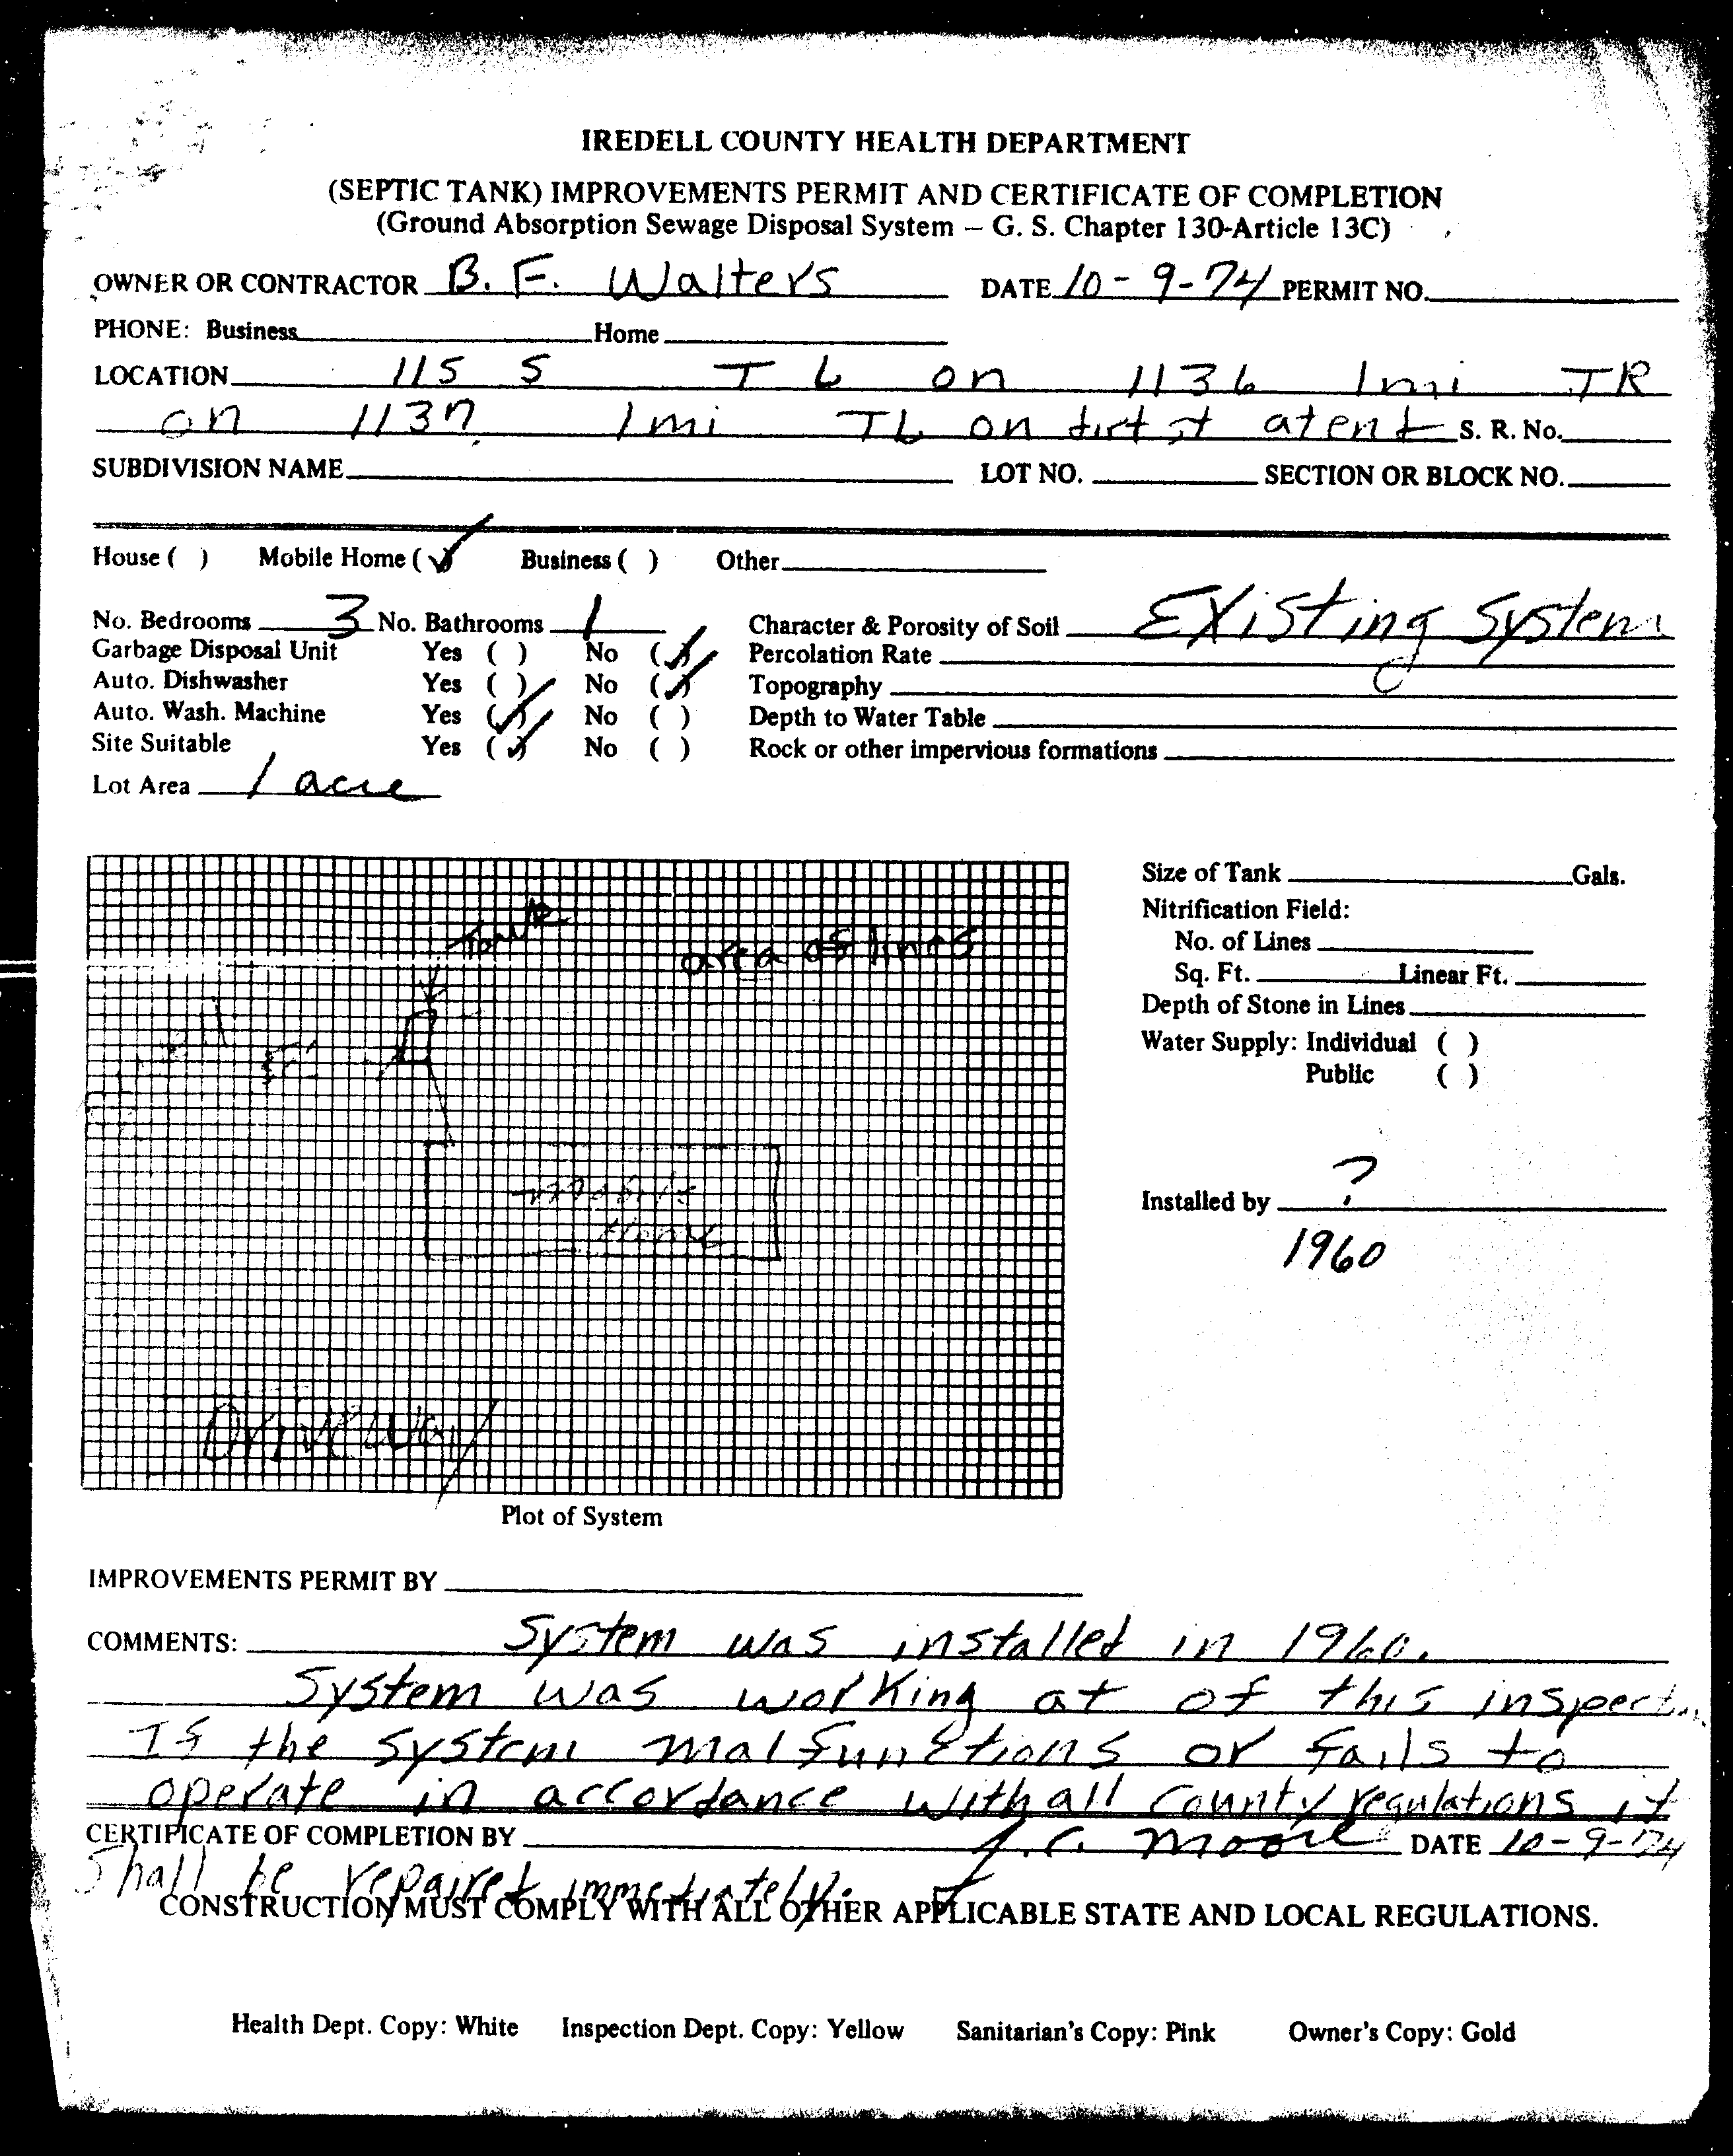 IREDELL COUNTY HEALTH DEPARTMENT
(SEPTIC TANK) IMPROVEMENTS PERMIT AND CERTIFICATE OF COMPLETION
(Ground Absorption Sewage Disposal System – G. S. Chapter 130-Article 13C)
OWNER OR CONTRACTOR B. F. Walters DATE 10-9-74 PERMIT NO.
PHONE: Business Home
LOCATION 115 S T L on 1136 1 mi TR
on 1137 1 mi TL on dirt st at end S. R. No.
SUBDIVISION NAME LOT NO. SECTION OR BLOCK NO.
House ( ) Mobile Home (✓) Business ( ) Other
No. Bedrooms 3 No. Bathrooms 1 Character & Porosity of Soil Existing System
Garbage Disposal Unit Yes ( ) No (✓) Percolation Rate
Auto. Dishwasher Yes ( ) No (✓) Topography
Auto. Wash. Machine Yes (✓) No ( ) Depth to Water Table
Site Suitable Yes (✓) No ( ) Rock or other impervious formations
Lot Area 1 acre
Tank
area of lines
mobile
home
Driveway
Plot of System
Size of Tank Gals.
Nitrification Field:
No. of Lines
Sq. Ft. Linear Ft.
Depth of Stone in Lines
Water Supply: Individual ( )
Public ( )
Installed by ?
1960
IMPROVEMENTS PERMIT BY
COMMENTS: System was installed in 1960.
System was working at of this inspection
If the system malfunctions or fails to
operate in accordance with all county regulations it
CERTIFICATE OF COMPLETION BY J. C. Moore DATE 10-9-74
Shall be repaired immediately.
CONSTRUCTION MUST COMPLY WITH ALL OTHER APPLICABLE STATE AND LOCAL REGULATIONS.
Health Dept. Copy: White Inspection Dept. Copy: Yellow Sanitarian's Copy: Pink Owner's Copy: Gold